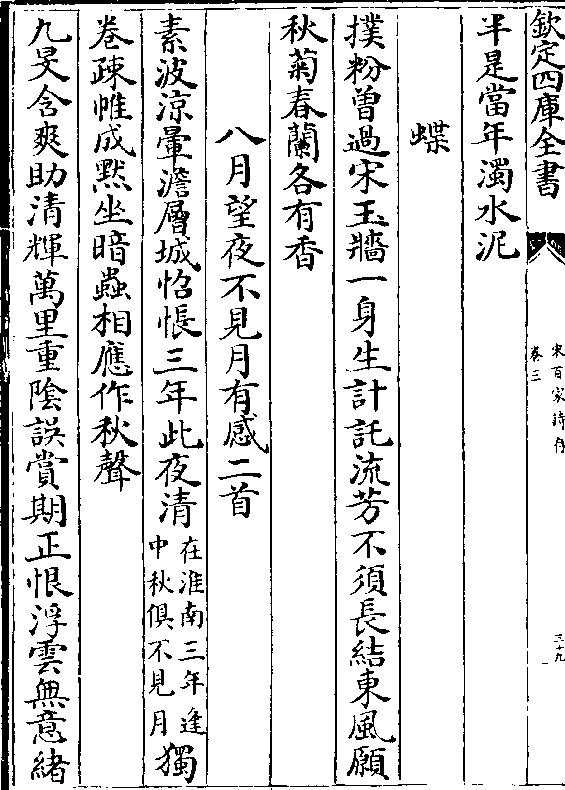 欽定四庫全書
宋百家詩存
卷三
三十九
半是當年濁水泥
蝶
撲粉曽過宋玉牆一身生計託流芳不須長結東風願
秋菊春蘭各有香
八月望夜不見月有感二首
素波涼暈澹層城怊悵三年此夜清在淮南三年逢中秋俱不見月獨
卷疎帷成黙坐暗蟲相應作秋聲
九旻含爽助清輝萬里重陰誤賞期正恨浮雲無意緒